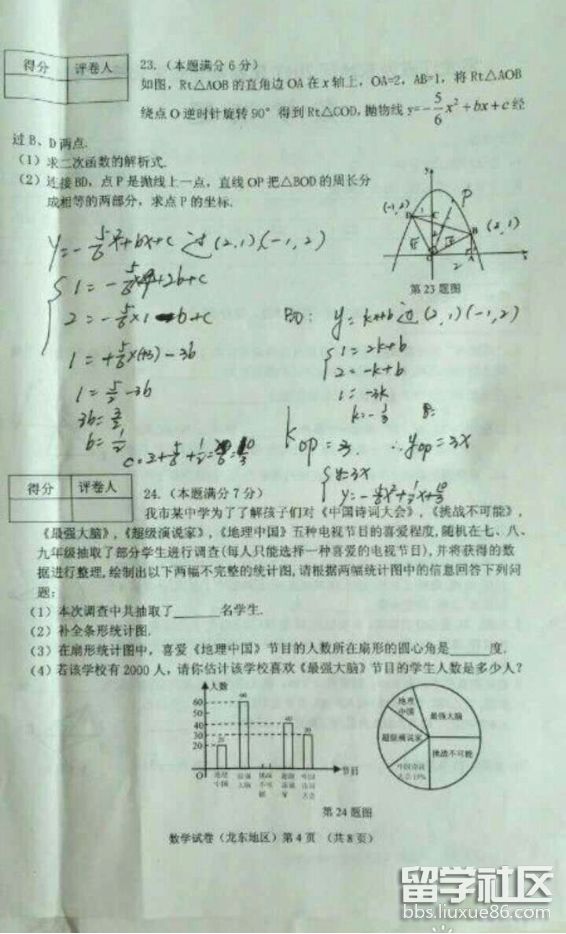 得分 评卷人
23.（本题满分6分）
如图，Rt△AOB的直角边OA在x轴上，OA=2，AB=1，将Rt△AOB
绕点O逆时针旋转90°得到Rt△COD，抛物线y=-5/6x²+bx+c经
过B、D两点.
（1）求二次函数的解析式.
（2）连接BD，点P是抛线上一点，直线OP把△BOD的周长分
成相等的两部分，求点P的坐标.
(-1,2) P
(2,1)
第23题图
y=-5/6x²+bx+c 过(2,1)(-1,2)
2=-5/6×1-b+c
1=5/2-3b
3b=3/2
b=1/2
BD: y=kx+b 过(2,1)(-1,2)
1=2k+b
2=-k+b
1=-3k
k=-1/3
kOP=3 ∴yOP=3x
y=3x
y=-5/6x²+1/2x+10/3
得分 评卷人
24.（本题满分7分）
我市某中学为了了解孩子们对《中国诗词大会》，《挑战不可能》，
《最强大脑》，《超级演说家》，《地理中国》五种电视节目的喜爱程度,随机在七、八、
九年级抽取了部分学生进行调查(每人只能选择一种喜爱的电视节目),并将获得的数
据进行整理,绘制出以下两幅不完整的统计图,请根据两幅统计图中的信息回答下列问
题：
（1）本次调查中共抽取了______名学生.
（2）补全条形统计图.
（3）在扇形统计图中，喜爱《地理中国》节目的人数所在扇形的圆心角是____度.
（4）若该学校有2000人，请你估计该学校喜欢《最强大脑》节目的学生人数是多少人？
人数
60
50
40
30
20
10
O
地理中国
节目
地理中国
最强大脑
超级演说家
挑战不可能
第24题图
数学试卷（龙东地区）第4页 （共8页）
留学社区
bbs.liuxue86.com